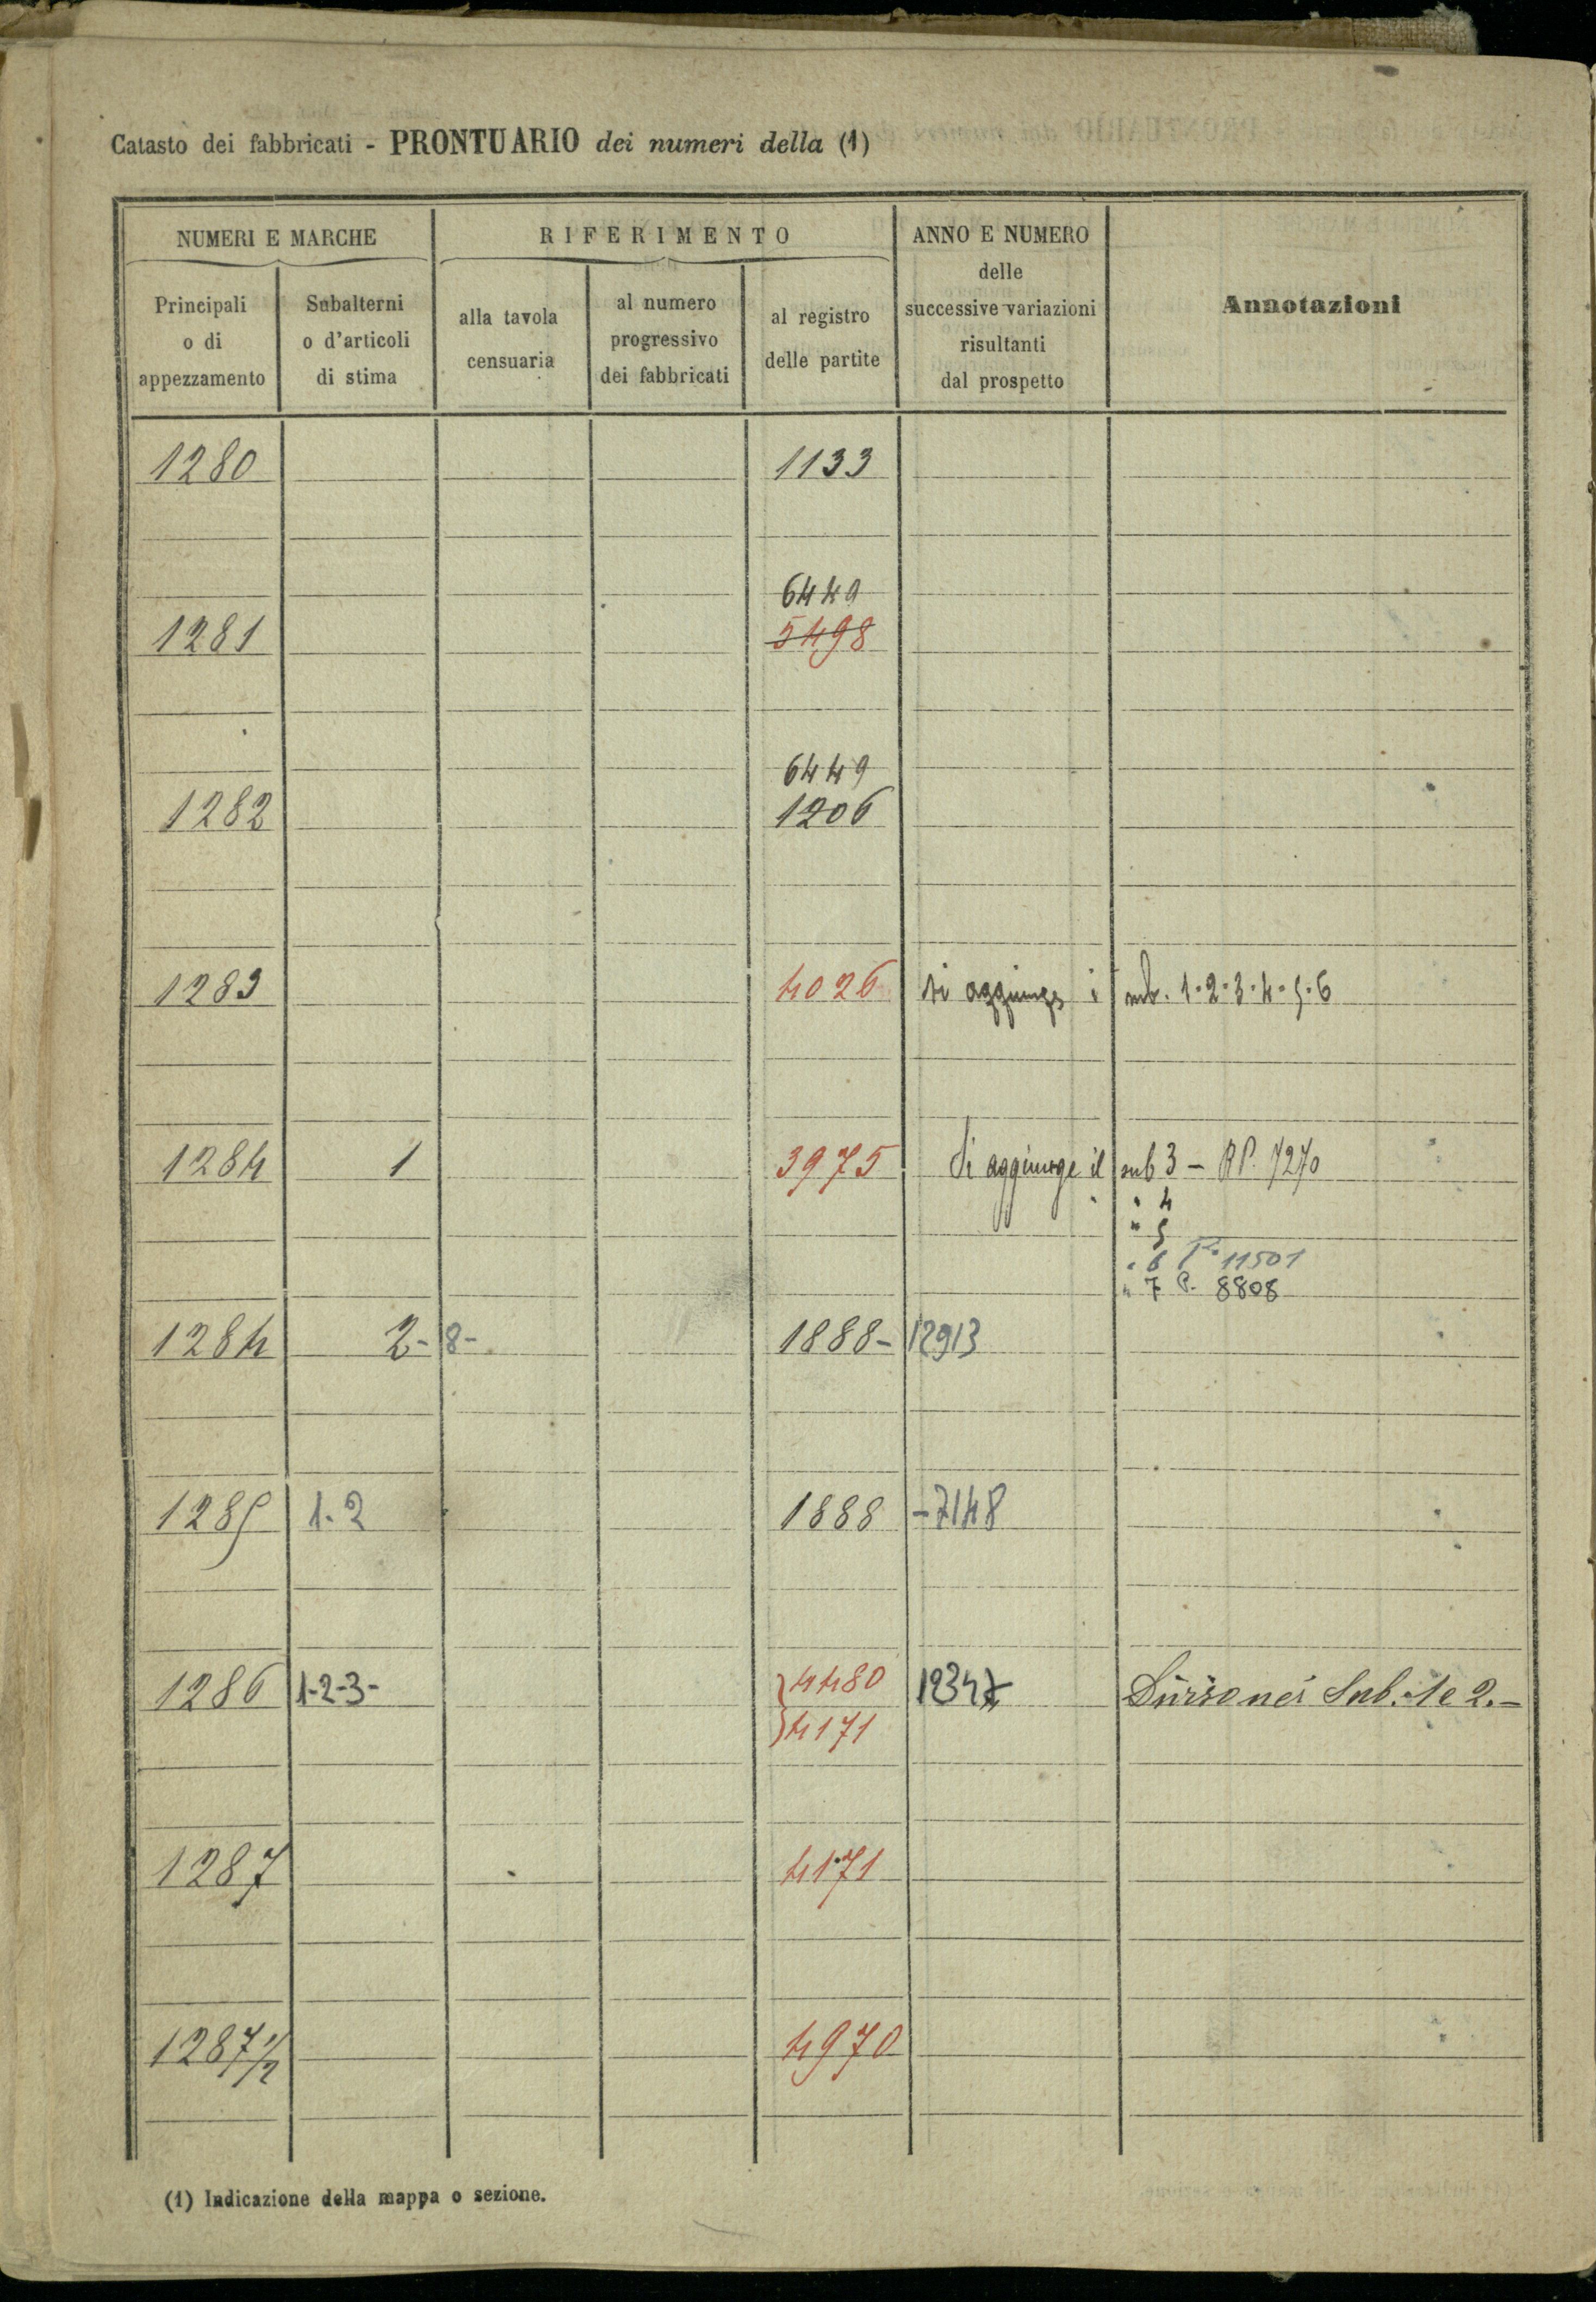 Catasto dei fabbricati - PRONTUARIO dei numeri della (1)
NUMERI E MARCHE
RIFERIMENTO
ANNO E NUMERO
delle
successive variazioni
risultanti
dal prospetto
Annotazioni
Principali
o di
appezzamento
Subalterni
o d'articoli
di stima
alla tavola
censuaria
al numero
progressivo
dei fabbricati
al registro
delle partite
1280 1133
6449
1281 5498
6449
1282 1206
1283 4026 si aggiunge i sub. 1-2-3-4-5-6
1284 1 3975 Si aggiunge il sub 3 - RP. 7270
" " 4
" 5
" 6 P. 11501
" 7 P. 8808
1284 2- 8- 1888- 12913
1285 1-2 1888 -7148
1286 1-2-3- 4480 12347 Diviso nei Sub. 1 e 2.-
4171
1287 4171
1287 1/2 4970
(1) Indicazione della mappa o sezione.